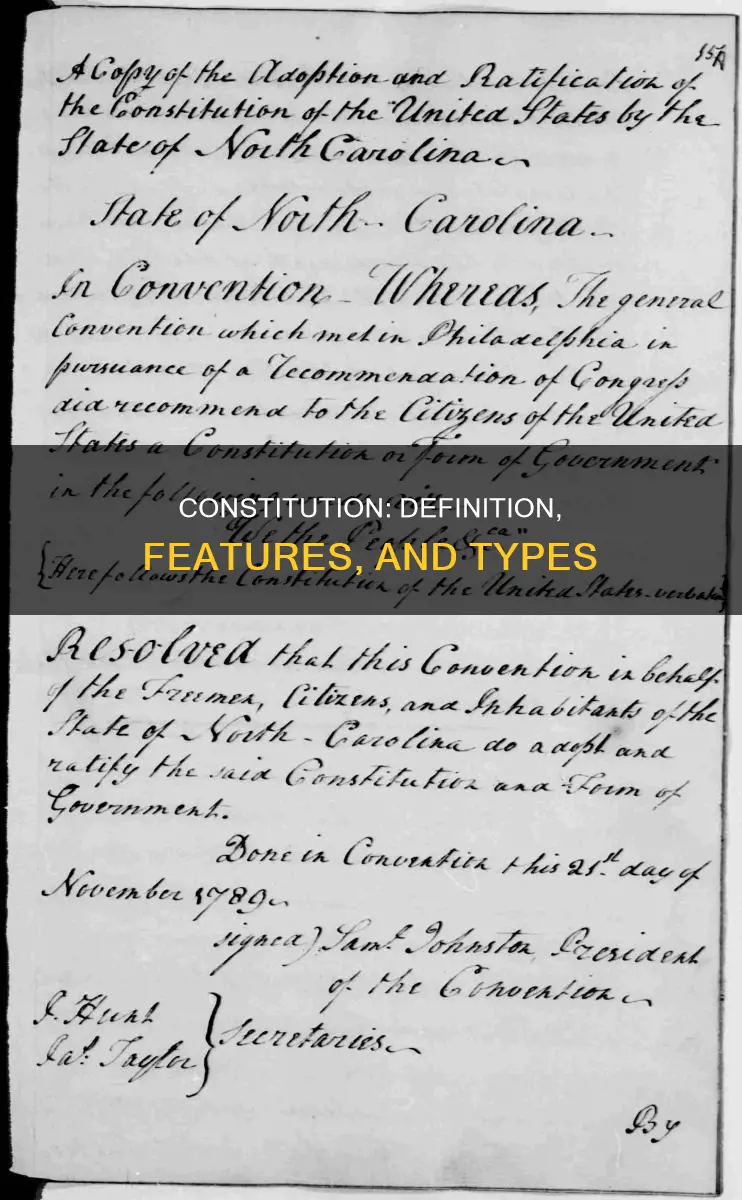 A Copy of the Adoption and Ratification of
the Constitution of the United States by the
State of North Carolina
State of North - Carolina
In Convention - Whereas, The general
Convention which met in Philadelphia in
pursuance of a recommendation of Congress
did recommend to the Citizens of the United
States a Constitution or Form of Government
in the following
CONSTITUTION: DEFINITION,
We the People &ca"
FEATURES, AND TYPES
{Here follows the Constitution of the United States - verbatim}
Resolved that this Convention in behalf
of the Freemen, Citizens, and Inhabitants of the
State of North - Carolina do adopt and
ratify the said Constitution and Form of
Government.
Done in Convention this 21st day of
November 1789
signed) Saml Johnston, President
of the Convention
J. Hunt
Jas. Taylor } Secretaries
By